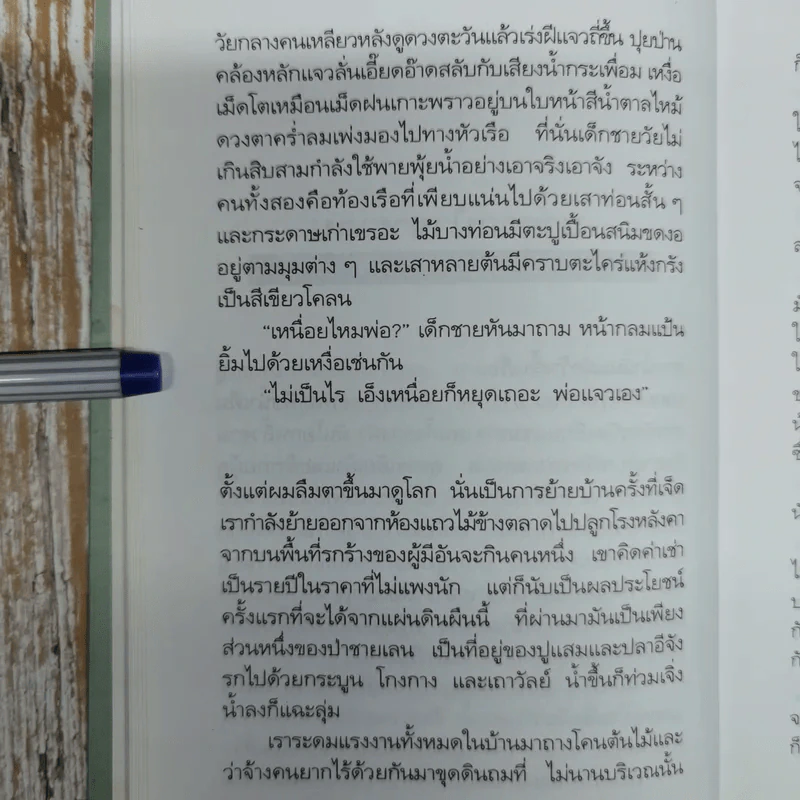 วัยกลางคนเหลียวหลังดูดวงตะวันแล้วเร่งฝีแจวถี่ขึ้น ปุยป่าน
คล้องหลักแจวลั่นเอี๊ยดอ๊าดสลับกับเสียงน้ำกระเพื่อม เหงื่อ
เม็ดโตเหมือนเม็ดฝนเกาะพราวอยู่บนใบหน้าสีน้ำตาลไหม้
ดวงตาคร่ำลมเพ่งมองไปทางหัวเรือ ที่นั่นเด็กชายวัยไม่
เกินสิบสามกำลังใช้พายพุ้ยน้ำอย่างเอาจริงเอาจัง ระหว่าง
คนทั้งสองคือท้องเรือที่เพียบแน่นไปด้วยเสาท่อนสั้น ๆ
และกระดาษเก่าเขรอะ ไม้บางท่อนมีตะปูเปื้อนสนิมขดงอ
อยู่ตามมุมต่าง ๆ และเสาหลายต้นมีคราบตะไคร่แห้งกรัง
เป็นสีเขียวโคลน
“เหนื่อยไหมพ่อ?” เด็กชายหันมาถาม หน้ากลมแป้น
ยิ้มไปด้วยเหงื่อเช่นกัน
“ไม่เป็นไร เอ็งเหนื่อยก็หยุดเถอะ พ่อแจวเอง”
ตั้งแต่ผมลืมตาขึ้นมาดูโลก นั่นเป็นการย้ายบ้านครั้งที่เจ็ด
เรากำลังย้ายออกจากห้องแถวไม้ข้างตลาดไปปลูกโรงหลังคา
จากบนพื้นที่รกร้างของผู้มีอันจะกินคนหนึ่ง เขาคิดค่าเช่า
เป็นรายปีในราคาที่ไม่แพงนัก แต่ก็นับเป็นผลประโยชน์
ครั้งแรกที่จะได้จากแผ่นดินผืนนี้ ที่ผ่านมามันเป็นเพียง
ส่วนหนึ่งของป่าชายเลน เป็นที่อยู่ของปูแสมและปลาอีจัง
รกไปด้วยกระบูน โกงกาง และเถาวัลย์ น้ำขึ้นก็ท่วมเจิ่ง
น้ำลงก็แฉะลุ่ม
เราระดมแรงงานทั้งหมดในบ้านมาถางโคนต้นไม้และ
ว่าจ้างคนยากไร้ด้วยกันมาขุดดินถมที่ ไม่นานบริเวณนั้น